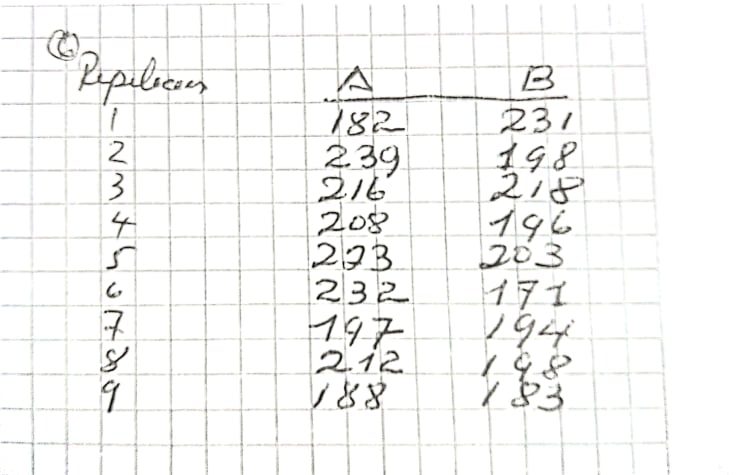 6
A B
1 182 231
2 239 198
3 216 218
4 208 196
5 203
6 232 171
7 197 194
8 212 198
9 188 183